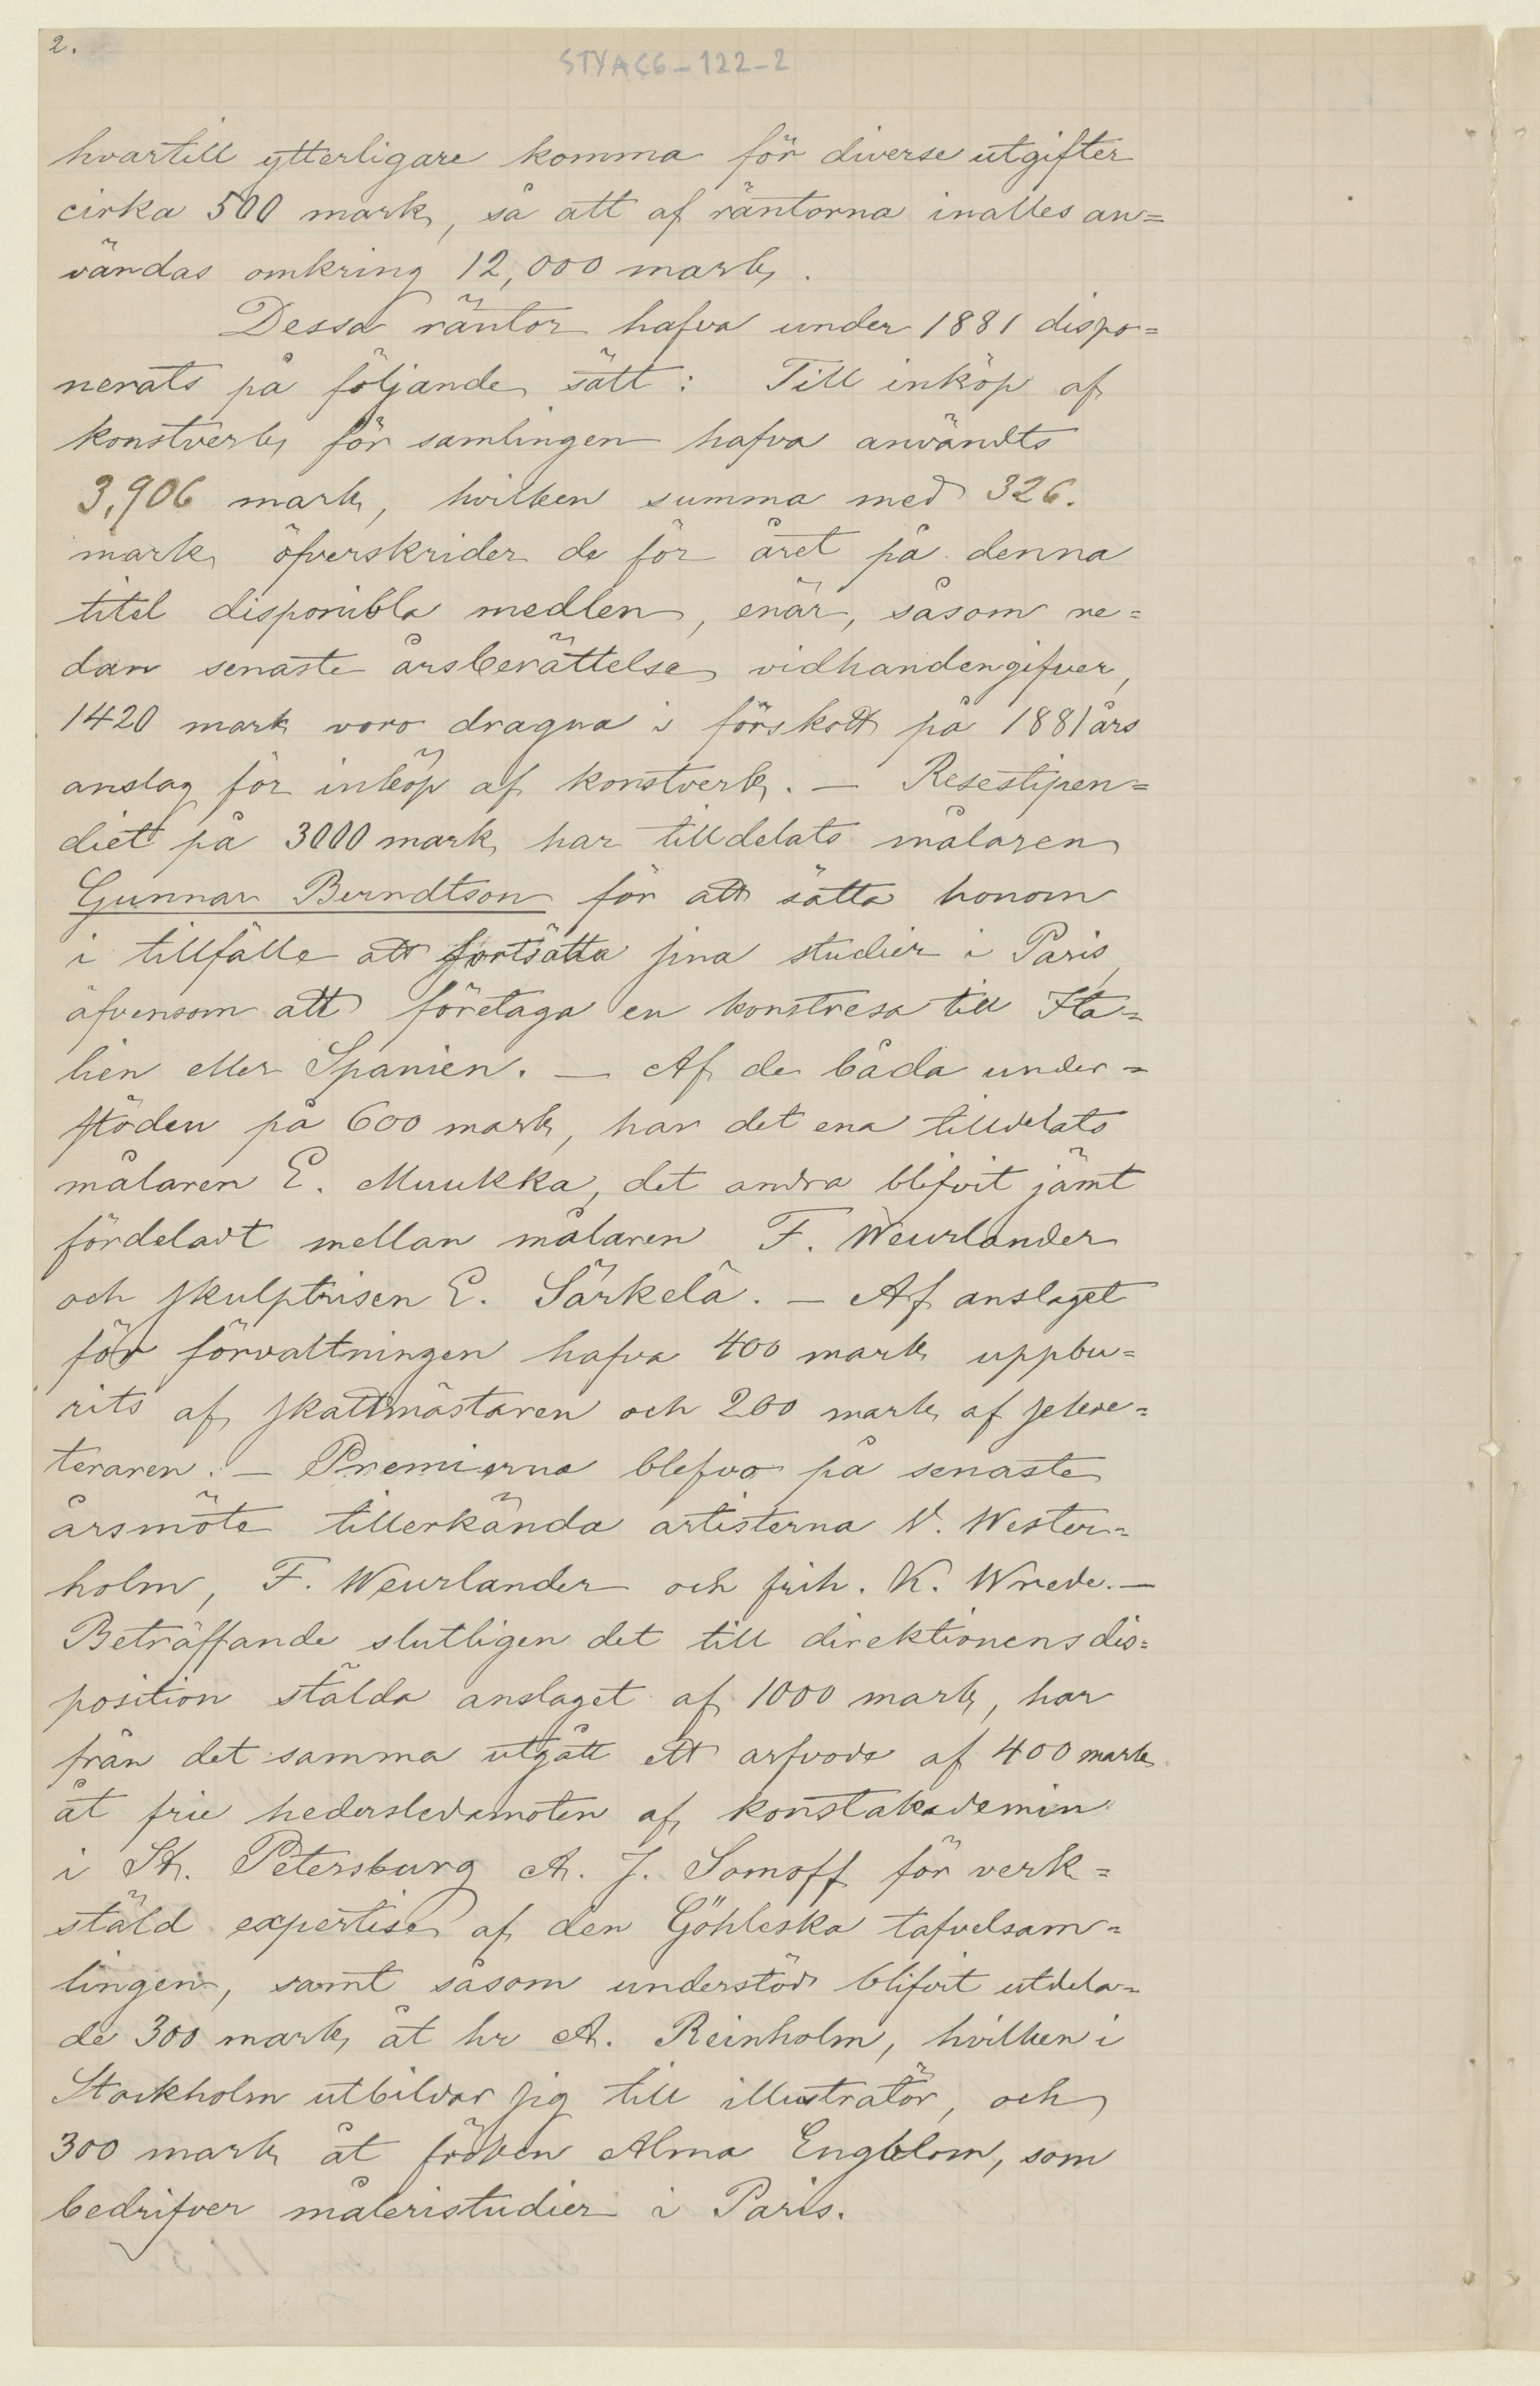 2.
STYAC6-122-2
hvartill ytterligare komma för diverse utgifter
cirka 500 mark, så att af räntorna inalles an=
vändas omkring 12,000 mark.
Dessa räntor hafva under 1881 dispo=
nerats på följande sätt: Till inköp af
konstverk för samlingen hafva användts
3,906 mark, hvilken summa med 326.
mark öfverskrider de för året på denna
titel disponibla medlen, enär, såsom re=
dan senaste årsberättelse vidhandengifver,
1420 mark voro dragna i förskott på 1881 års
anslag för inköp af konstverk. — Resestipen=
diet på 3000 mark har tilldelats målaren
Gunnar Berndtson för att sätta honom
i tillfälle att fortsätta sina studier i Paris,
äfvensom att företaga en konstresa till Ita=
lien eller Spanien. — Af de båda under=
stöden på 600 mark, har det ena tilldelats
målaren E. Muukka, det andra blifvit jämt
fördeladt mellan målaren F. Weurlander
och skulptrisen E. Särkelä. — Af anslaget
för förvaltningen hafva 400 mark uppbu=
rits af skattmästaren och 200 mark af sekre=
teraren. — Premierna blefvo på senaste
årsmöte tillerkända artisterna V. Wester=
holm, F. Weurlander och frih. K. Wrede. —
Beträffande slutligen det till direktionens dis=
position stälda anslaget af 1000 mark, har
från det samma utgått ett arfvode af 400 mark
åt frie hedersledamoten af konstakademin
i St. Petersburg A. J. Somoff för verk=
stäld expertise af den Göhleska tafvelsam=
lingen, samt såsom understöd blifvit utdela=
de 300 mark åt hr A. Reinholm, hvilken i
Stockholm utbildar sig till illustratör, och
300 mark åt fröken Alma Engblom, som
bedrifver måleristudier i Paris.